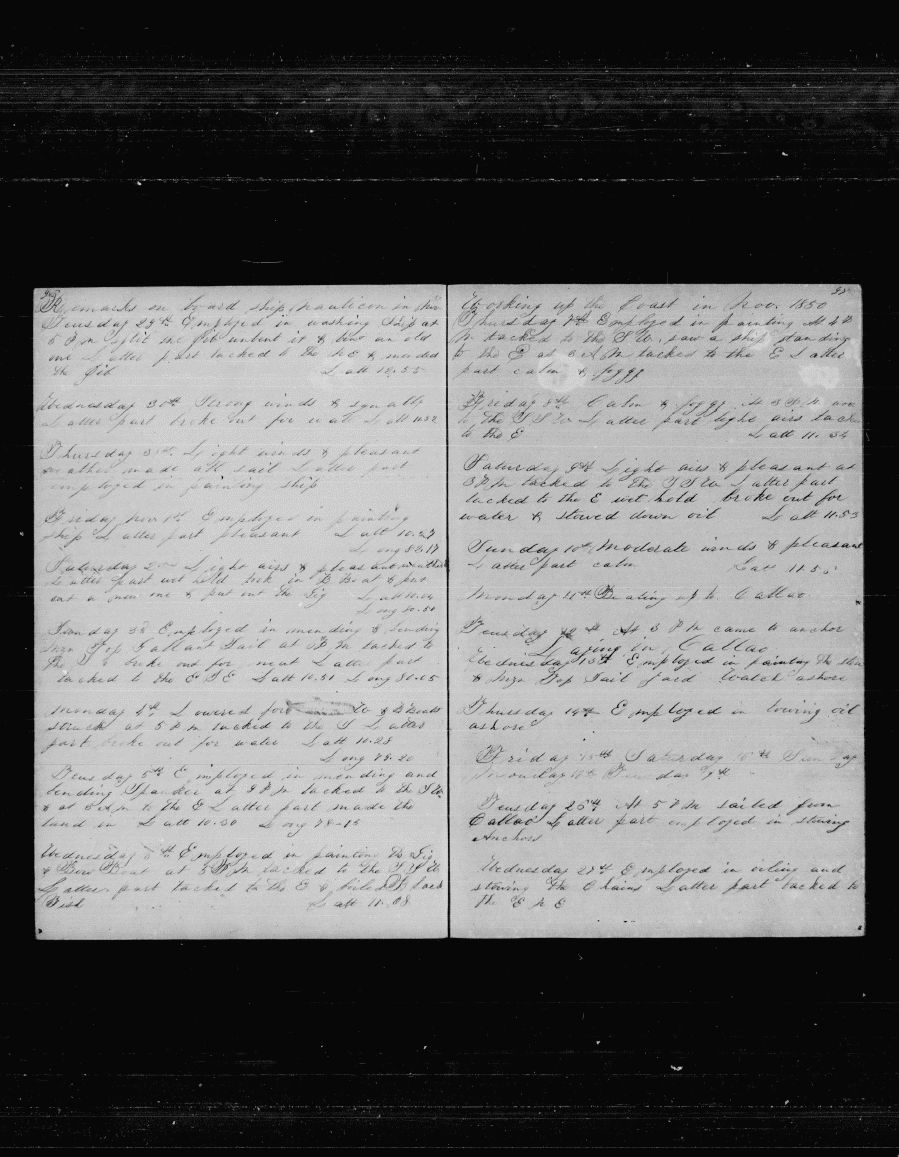 Remarks on board ship Nauticon in Nov
Tuesday 29th Employed in washing Ship at
5 P.M split the Jib unbent it & bent an old
one Latter part tacked to the NE & mended
the Jib Latt 12.55
Wednesday 30th Strong winds & squally
Latter part broke out for Latt 11.32
Thursday 31st Light winds & pleasant
weather made all sail Latter part
employed in painting ship
Friday Nov 1st Employed in painting
ship Latter part pleasant Latt 10.27
Long 82.17
Saturday 2nd Light airs & pleasant weather
Latter part wet hold took in B Boat & put
out a new one & put out the Gig Latt 10.04
Long 80.50
Sunday 3d Employed in mending & bending
Mzn Top Gallant Sail at P.M tacked to
the S broke out for meat Latter part
tacked to the ESE Latt 10.31 Long 80.05
Monday 4th Lowered for W & B Boats
struck at 5 P M tacked to the S Latter
part broke out for water Latt 10.28
Long 79.20
Tuesday 5th Employed in mending and
bending Spanker at P M tacked to the SW
& at to the E Latter part made the
land in Latt 10.50 Long 78.15
Wednesday 6th Employed in painting the Gig
& Bow Boat at 5 P M tacked to the SSW
Latter part tacked to the E & Black
Fish Latt 11.08
Working up the Coast in Nov. 1850
Thursday 7th Employed in painting At 4 P
M tacked to the SW, saw a ship standing
to the E at A M tacked to the E Latter
part calm & foggy
Friday 8th Calm & foggy At 3 P.M
to the SSW Latter part light airs tack
to the E Latt 11.34
Saturday 9th Light airs & pleasant at
3 P M tacked to the SSW Latter part
tacked to the E wet hold broke out for
water & stowed down oil Latt 11.53
Sunday 10th Moderate winds & pleasant
Latter part calm Latt 11.5
Monday 11th Beating up to Callao
Tuesday 12th At 3 P M came to anchor
Laying in Callao
Wednesday 13th Employed in painting the
& Mzn Top Sail Yard Water ashore
Thursday 14th Employed in towing oil
ashore
Friday 15th Saturday 16th Sunday
Monday 18th Tuesday 19th
Tuesday 26th At 5 P M sailed from
Callao Latter part employed in stowing
Anchors
Wednesday 27th Employed in oiling and
stowing the Chains Latter part tacked to
the E